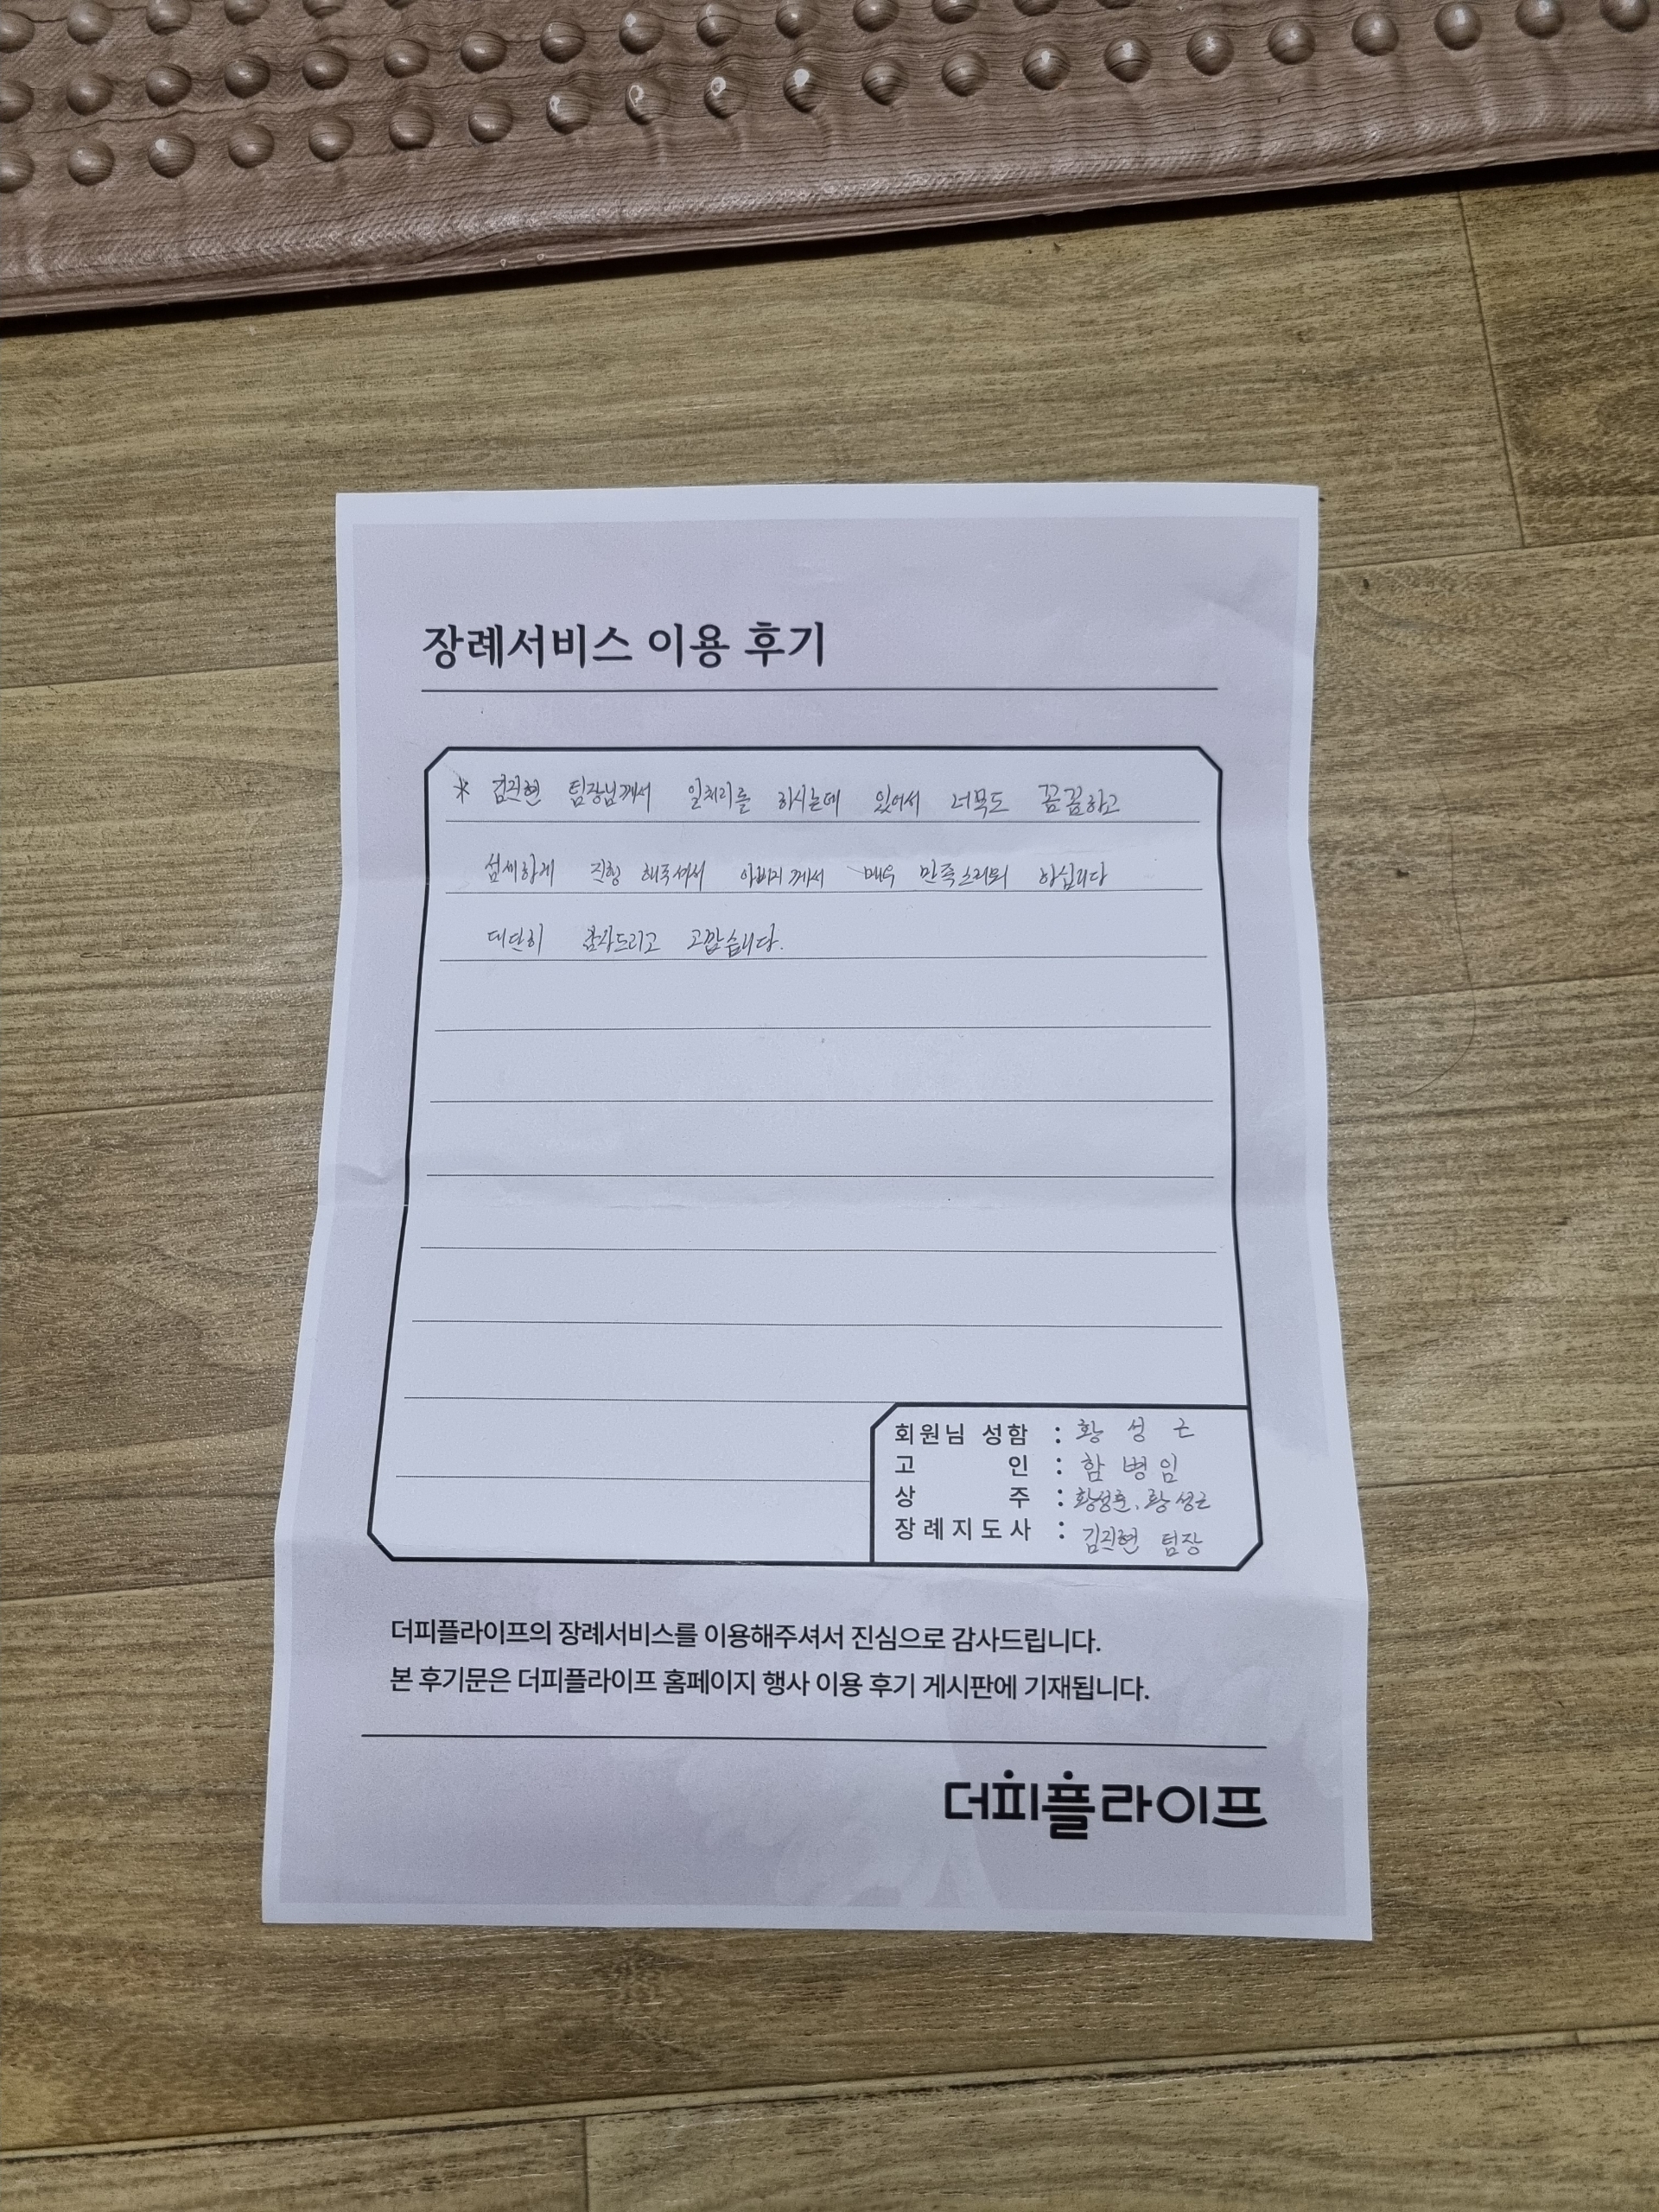 장례서비스 이용 후기
* 김진현 팀장님께서 일처리를 하시는데 있어서 너무도 꼼꼼하고
섬세하게 진행 해주셔서 아버지께서 매우 만족스러워 하십니다
대단히 감사드리고 고맙습니다.
회원님 성함 : 황 성 근
고 인 : 함 병 임
상 주 : 황성훈, 황성근
장례지도사 : 김진현 팀장
더피플라이프의 장례서비스를 이용해주셔서 진심으로 감사드립니다.
본 후기문은 더피플라이프 홈페이지 행사 이용 후기 게시판에 기재됩니다.
더피플라이프